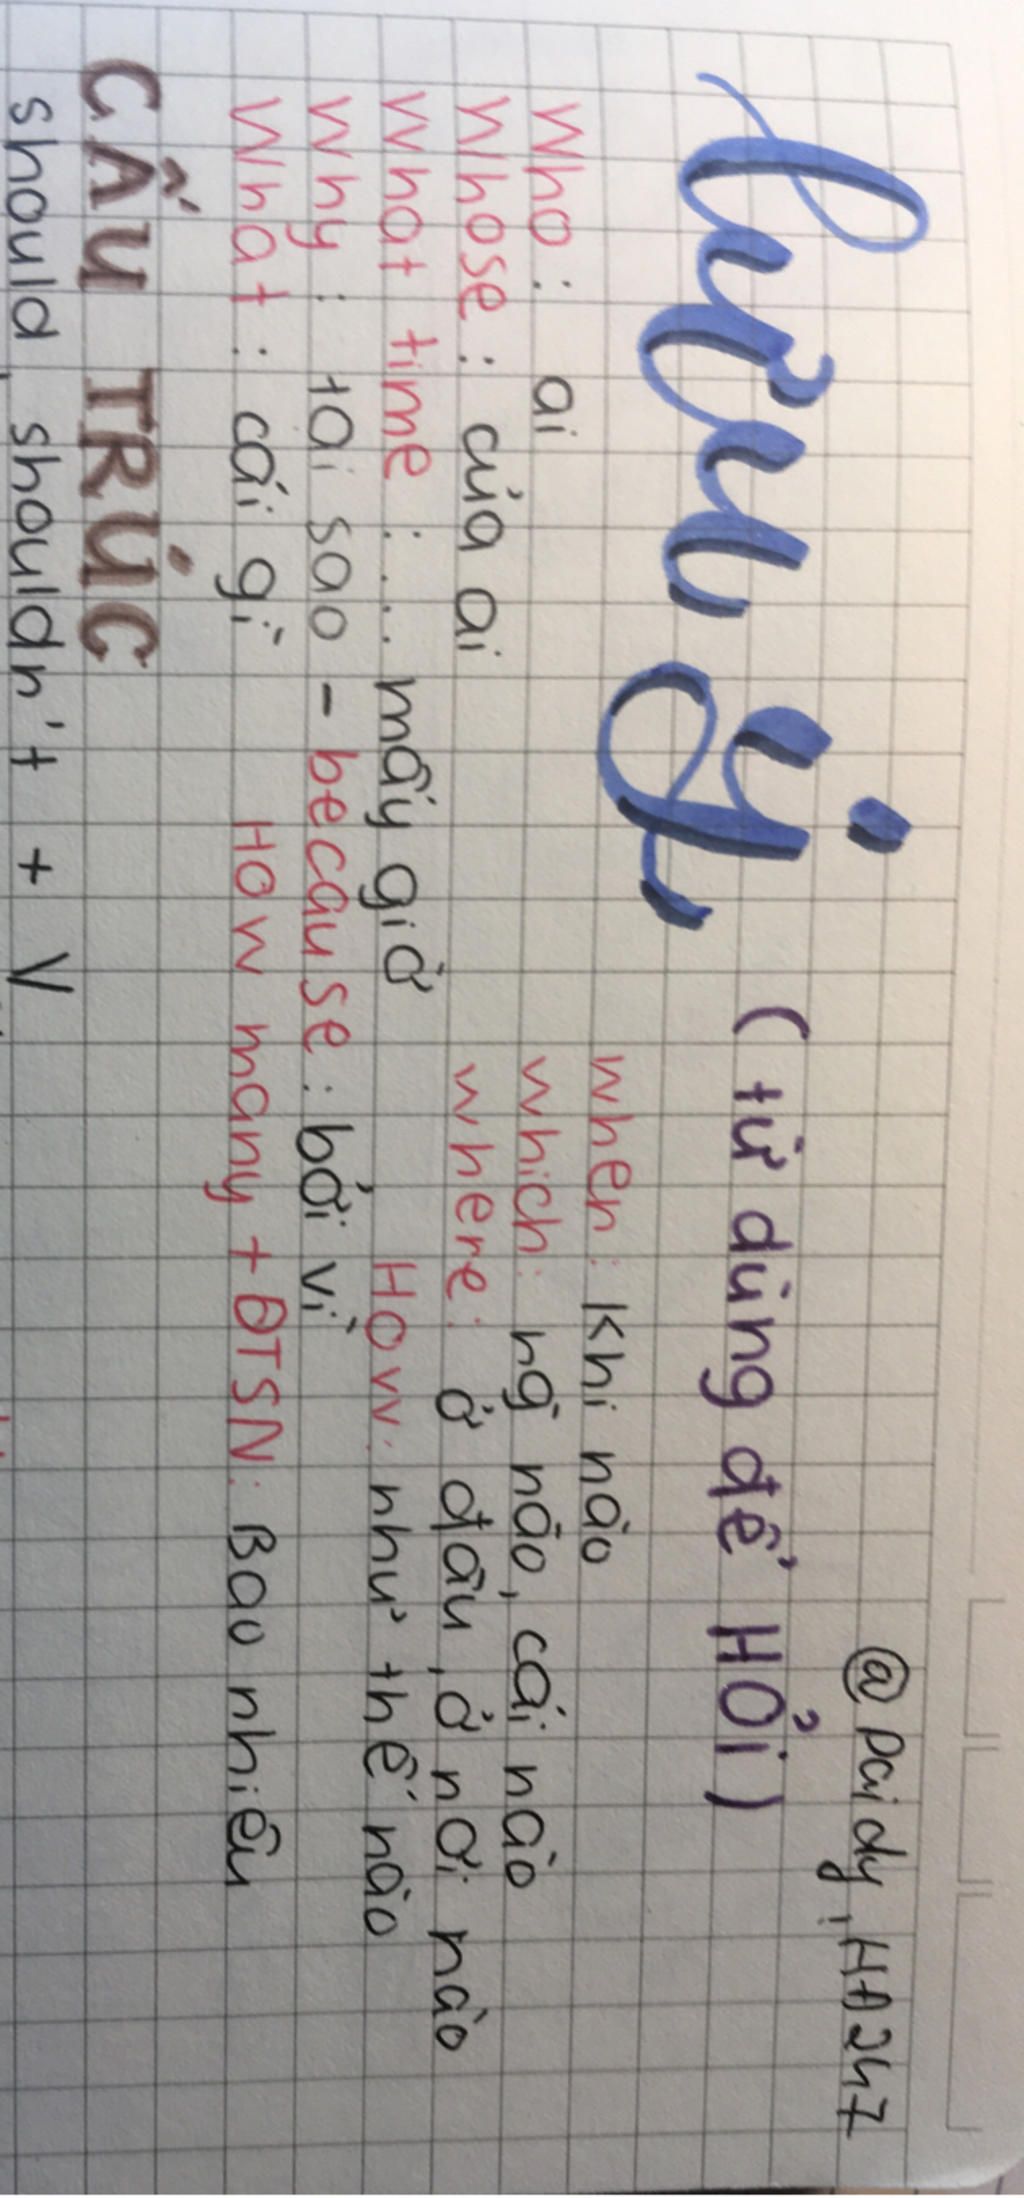 @ Daidy, HH2h7
lưu ý (từ dùng để HỎi)
when: Khi nào
Who: ai
which: ng nào, cái nào
Whose: của ai
where: ở đâu, ở nơi nào
What time :.... mấy giờ
How: như thế nào
Why: tại sao - because: bởi vì
What: cái gì
How many + ĐTSN: Bao nhiêu
CẤU TRÚC
should, shouldn't + V